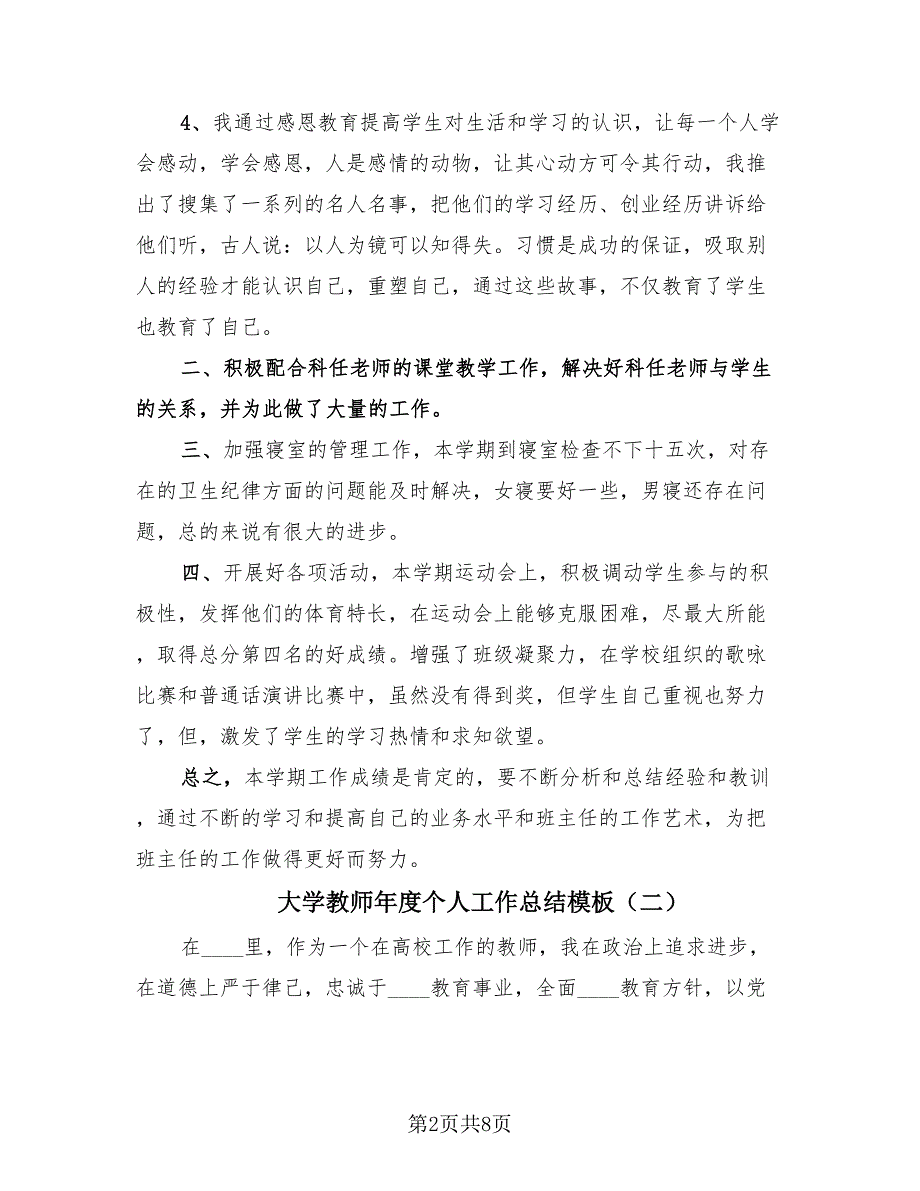 4、我通过感恩教育提高学生对生活和学习的认识，让每一个人学
会感动，学会感恩，人是感情的动物，让其心动方可令其行动，我推
出了搜集了一系列的名人名事，把他们的学习经历、创业经历讲诉给
他们听，古人说：以人为镜可以知得失。习惯是成功的保证，吸取别
人的经验才能认识自己，重塑自己，通过这些故事，不仅教育了学生
也教育了自己。
二、积极配合科任老师的课堂教学工作，解决好科任老师与学生
的关系，并为此做了大量的工作。
三、加强寝室的管理工作，本学期到寝室检查不下十五次，对存
在的卫生纪律方面的问题能及时解决，女寝要好一些，男寝还存在问
题，总的来说有很大的进步。
四、开展好各项活动，本学期运动会上，积极调动学生参与的积
极性，发挥他们的体育特长，在运动会上能够克服困难，尽最大所能
，取得总分第四名的好成绩。增强了班级凝聚力，在学校组织的歌咏
比赛和普通话演讲比赛中，虽然没有得到奖，但学生自己重视也努力
了，但，激发了学生的学习热情和求知欲望。
总之，本学期工作成绩是肯定的，要不断分析和总结经验和教训
，通过不断的学习和提高自己的业务水平和班主任的工作艺术，为把
班主任的工作做得更好而努力。
大学教师年度个人工作总结模板（二）
在____里，作为一个在高校工作的教师，我在政治上追求进步，
在道德上严于律己，忠诚于____教育事业，全面____教育方针，以党
第2页共8页